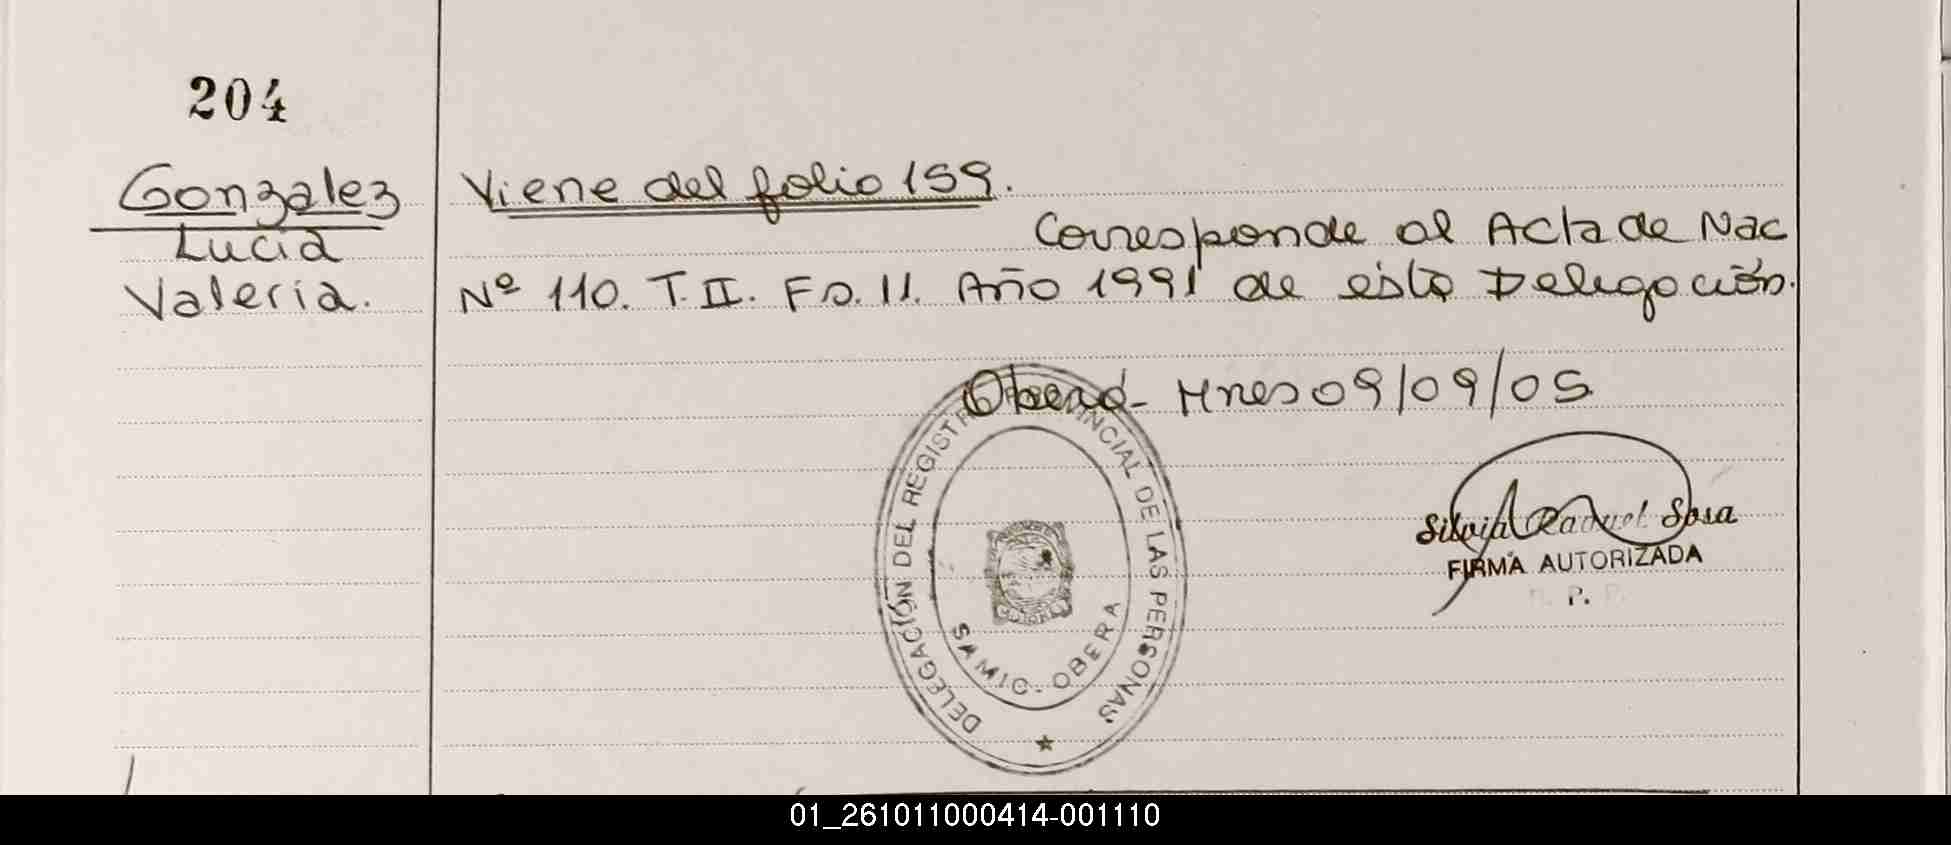 204
Gonzalez
Lucia
Valeria.
Viene del folio 159.
Corresponde al Acta de Nac
Nº 110. T. II. Fo. 11. Año 1991 de esta Delegación.
Oberá- Mnes 09/09/05
DELEGACIÓN DEL REGISTRO PROVINCIAL DE LAS PERSONAS
SAMIC - OBERA
Silvia Raquel Sosa
FIRMA AUTORIZADA
R. P. P.
01_261011000414-001110